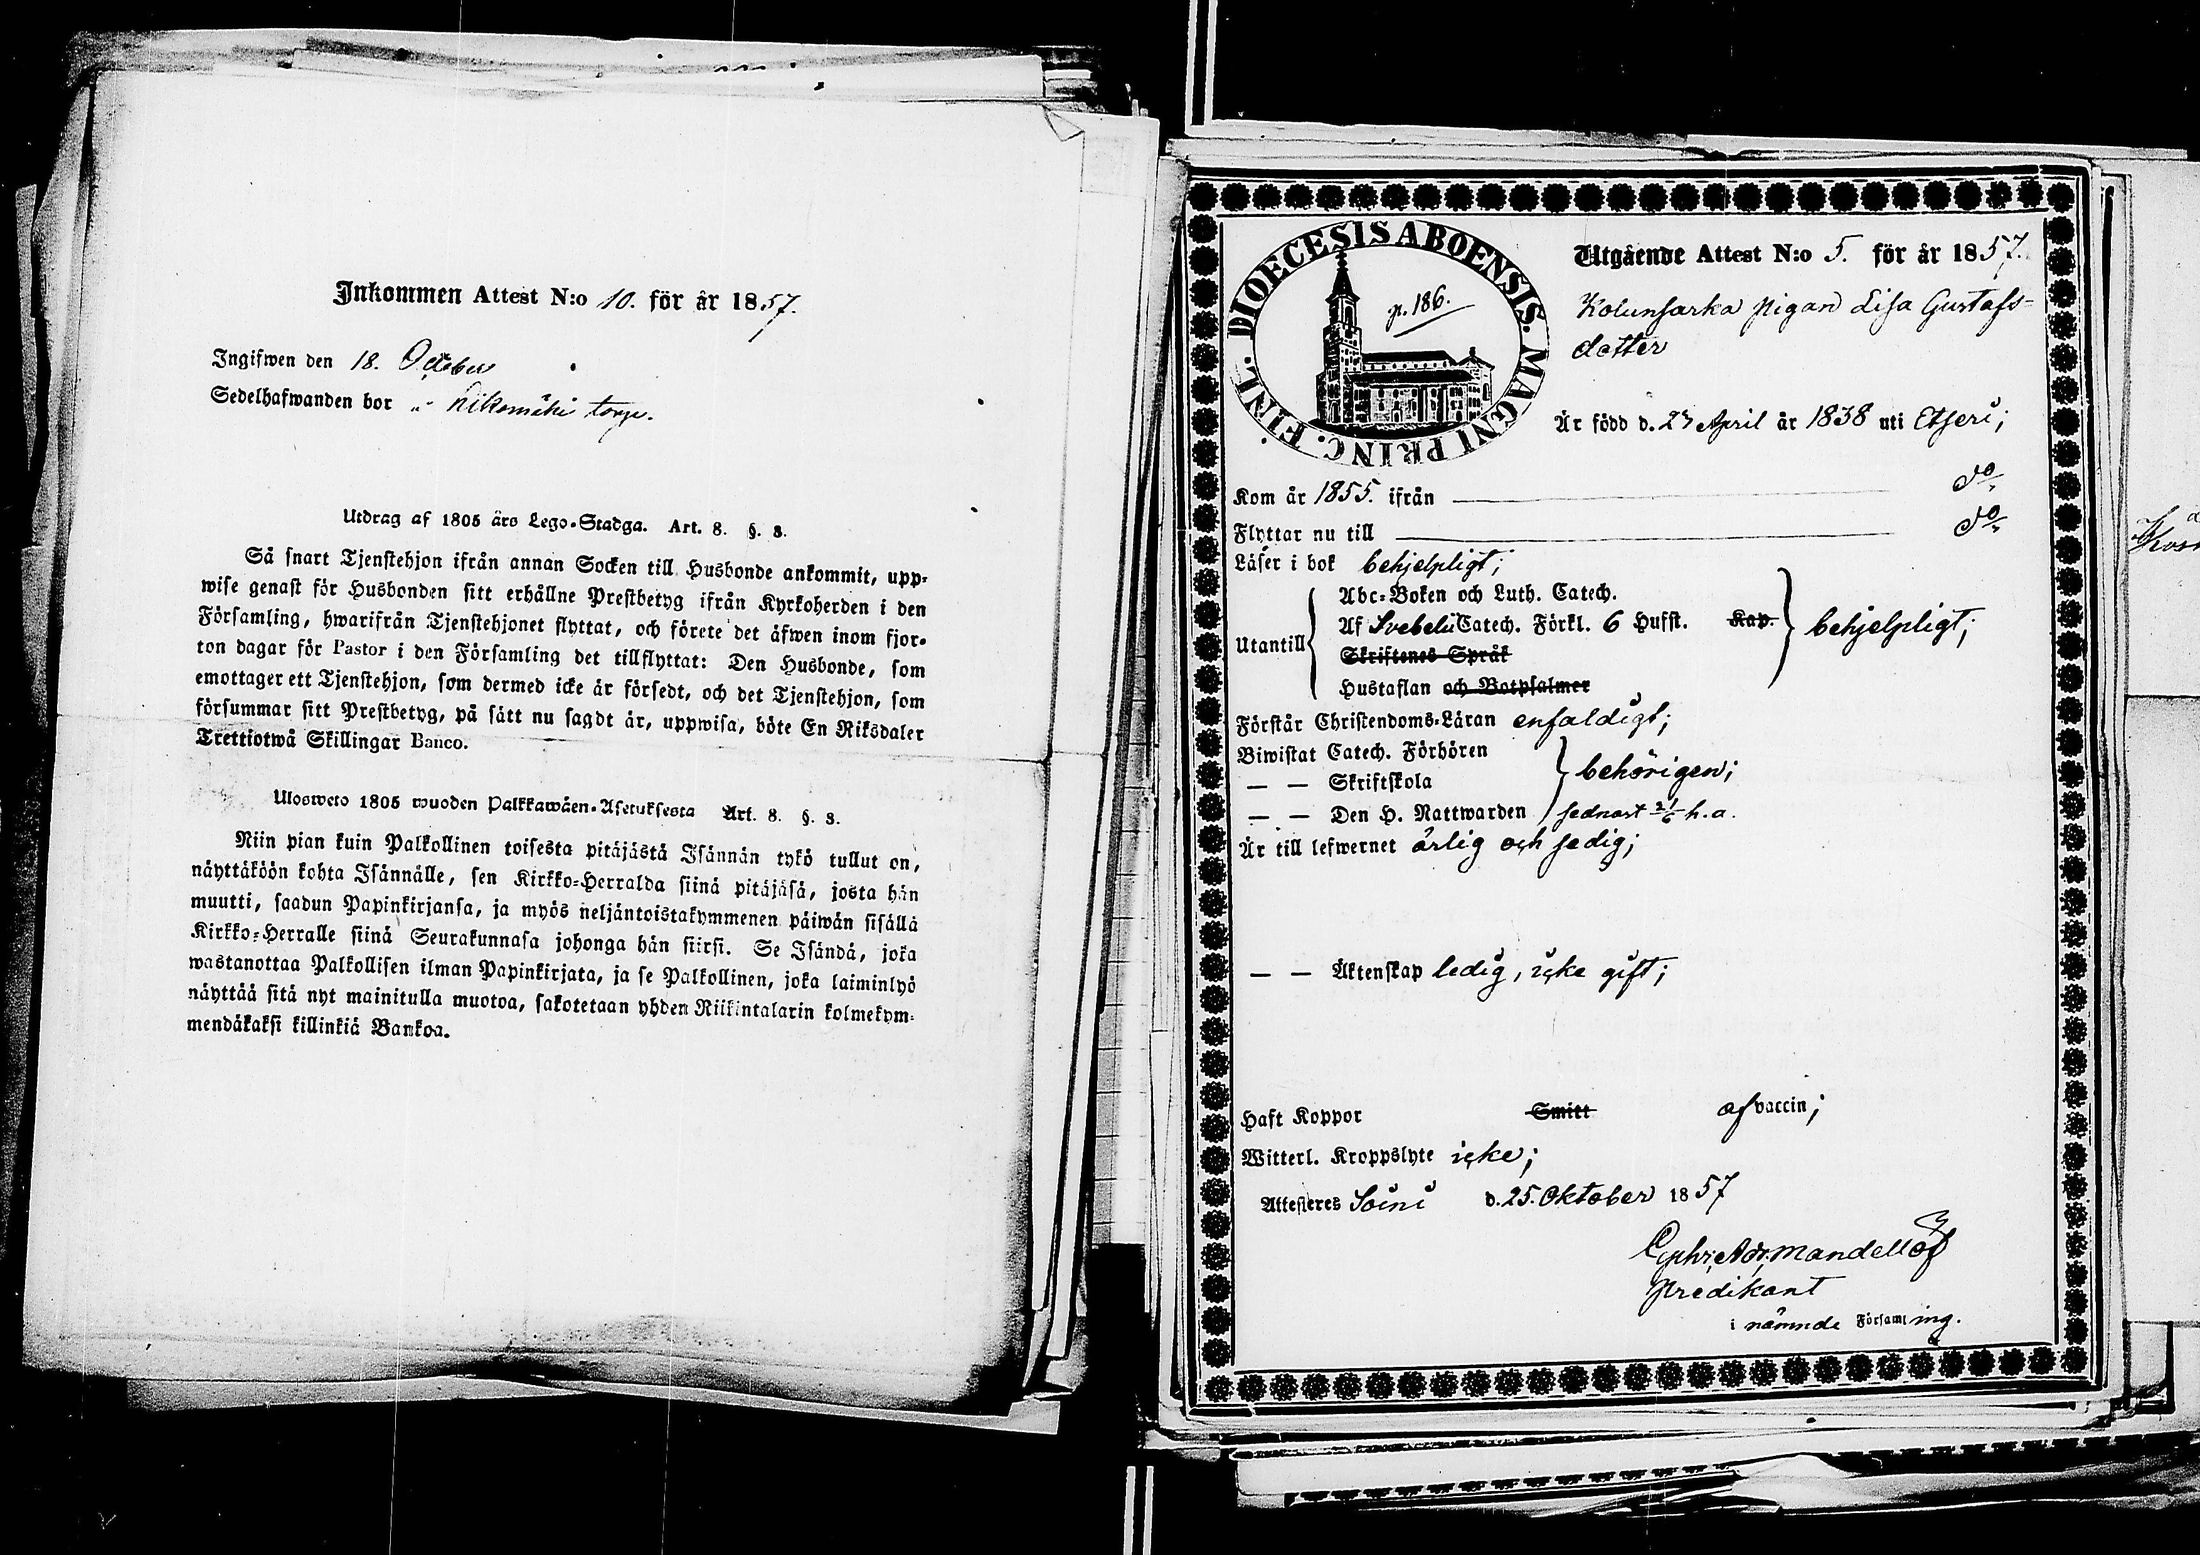 Inkommen Attest N:o 10. för år 1857.
Ingifwen den 18. October
Sedelhafwanden bor " Kikomäki torp.
Utdrag af 1805 års Lego-Stadga. Art. 8. §. 3.
Så snart Tjenstehjon ifrån annan Socken till Husbonde ankommit, upp-
wise genast för Husbonden sitt erhållne Prestbetyg ifrån Kyrkoherden i den
Församling, hwarifrån Tjenstehjonet flyttat, och förete det äfwen inom fjor-
ton dagar för Pastor i den Församling det tillflyttat: Den Husbonde, som
emottager ett Tjenstehjon, som dermed icke är försedt, och det Tjenstehjon, som
försummar sitt Prestbetyg, på sätt nu sagdt är, uppwisa, böte En Riksdaler
Trettiotwå Skillingar Banco.
Ulosweto 1805 wuoden Palkkawäen-Asetuksesta Art. 8. §. 3.
Niin pian kuin Palkollinen toisesta pitäjästä Isännän tykö tullut on,
näyttäköön kohta Isännälle, sen Kirkko-Herralda siinä pitäjäsä, josta hän
muutti, saadun Papinkirjansa, ja myös neljäntoistakymmenen päiwän sisällä
Kirkko-Herralle siinä Seurakunnasa johonga hän siirsi. Se Isändä, joka
wastanottaa Palkollisen ilman Papinkirjata, ja se Palkollinen, joka laiminlyö
näyttää sitä nyt mainitulla muotoa, sakotetaan yhden Riikintalarin kolmekym-
mendäkaksi killinkiä Bankoa.
DIOECESIS ABOENSIS. MAGNI PRINC. FINL.
p. 186.
Utgående Attest N:o 5. för år 1857.
Kolunsarka pigan Lisa Gustafs-
dotter
Är född d. 27 April år 1838 uti Etseri;
Kom år 1855. ifrån do
Flyttar nu till do
Läser i bok behjelpligt;
Utantill
Abc-Boken och Luth. Catech.
Af Svebelii Catech. Förkl. 6 Hufst. Kap.
Skriftenes Språk
Hustaflan och Botpsalmer
behjelpligt;
Förstår Christendoms-Läran enfaldigt;
Biwistat Catech. Förhören
— — Skriftskola behörigen;
— — Den H. Nattwarden sednast 21/6 h.a.
Är till lefwernet ärlig och sedig;
— — Äktenskap ledig, icke gift;
Haft Koppor Smitt af vaccin;
Witterl. Kroppslyte icke;
Attesteres Soini d. 25. Oktober 1857
Mandellöf
Predikant
i nämnde Församling.